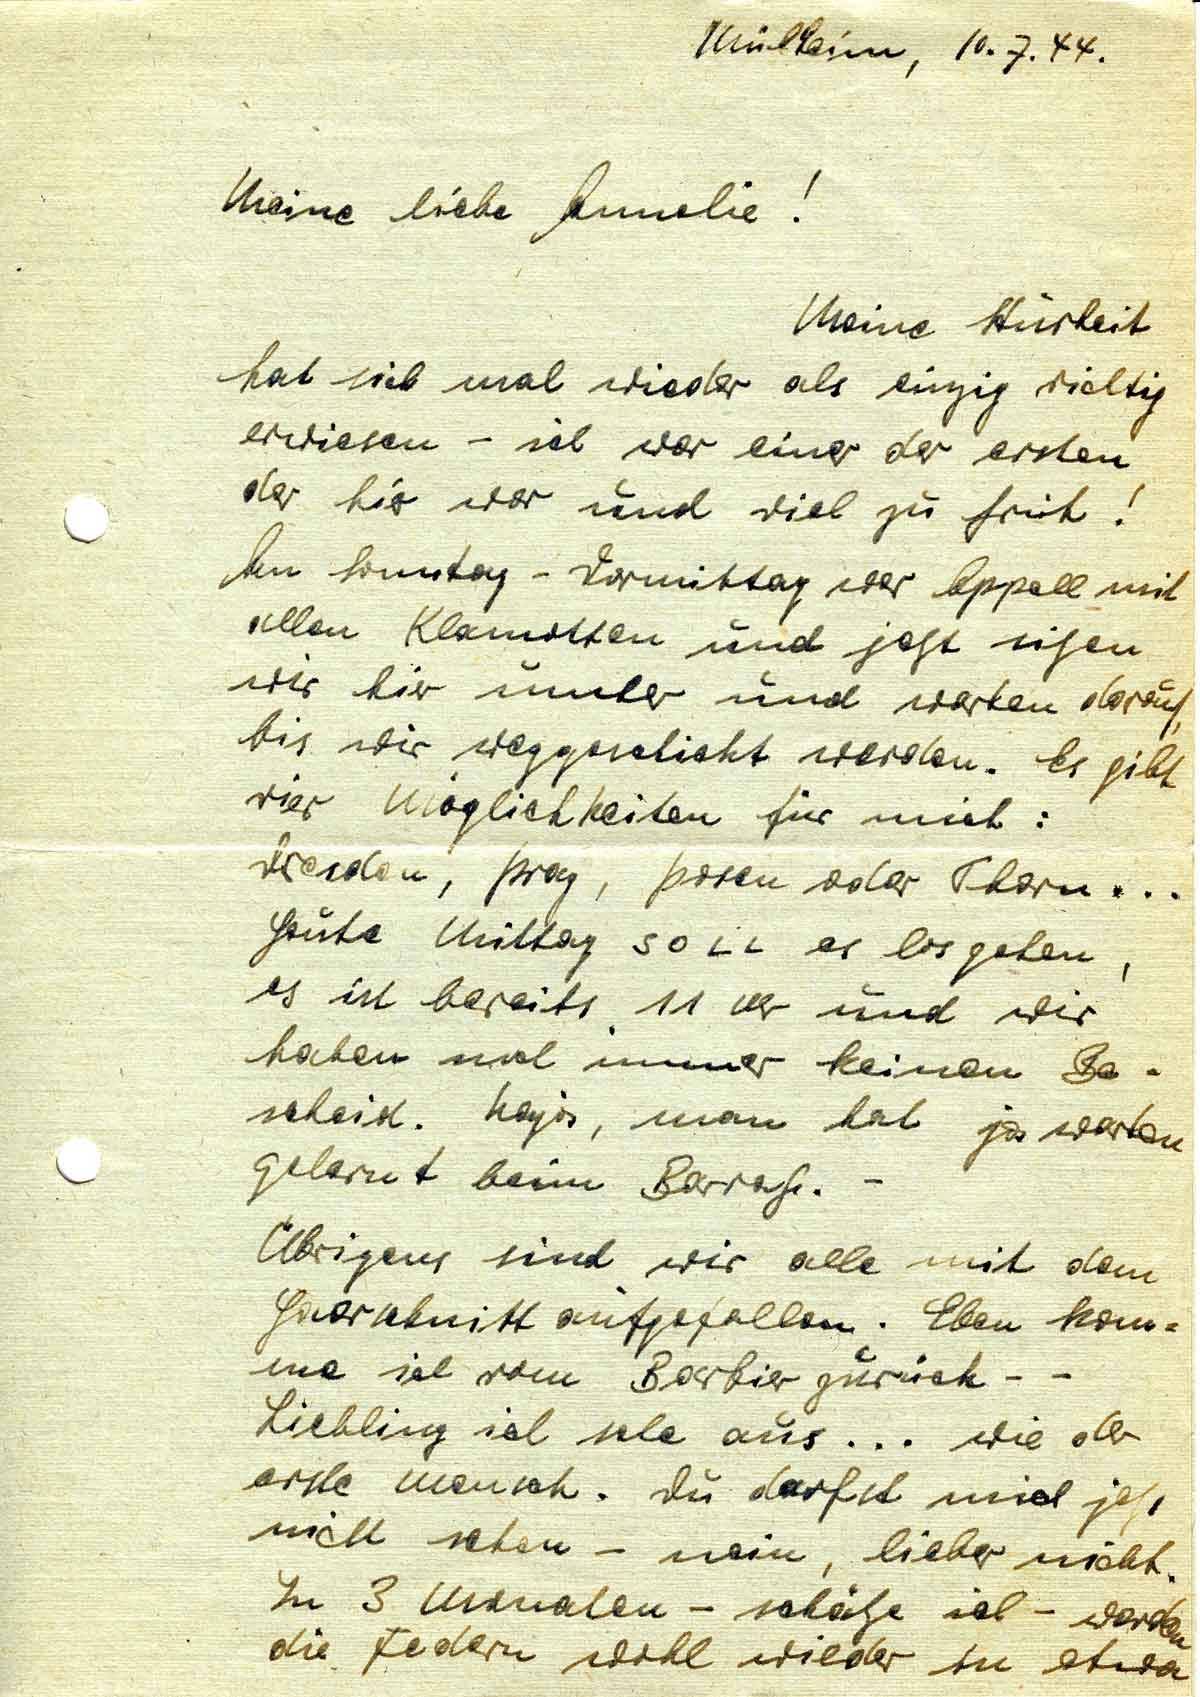 Mülheim, 10.7.44.
Meine liebe Annelie!
Meine Sturheit
hat sich mal wieder als einzig richtig
erwiesen - ich war einer der ersten
der hier war und viel zu früh!
Am Sonntag-Vormittag war Appell mit
allen Klamotten und jetzt sitzen
wir hier umher und warten darauf,
bis wir weggeschickt werden. Es gibt
vier Möglichkeiten für mich:
Dresden, Prag, Posen oder Thorn...
Heute Mittag SOLL es losgehen,
es ist bereits 11 Uhr und wir
haben noch immer keinen Be-
scheid. Naja, man hat ja warten
gelernt beim Barras. -
Übrigens sind wir alle mit dem
Haarschnitt aufgefallen. Eben kom=
me ich vom Barbier zurück - -
Liebling ich sehe aus... wie der
erste Mensch. Du darfst mich jetzt
nicht sehen - nein, lieber nicht.
In 3 Monaten - schätze ich - werden
die Federn wohl wieder so etwa